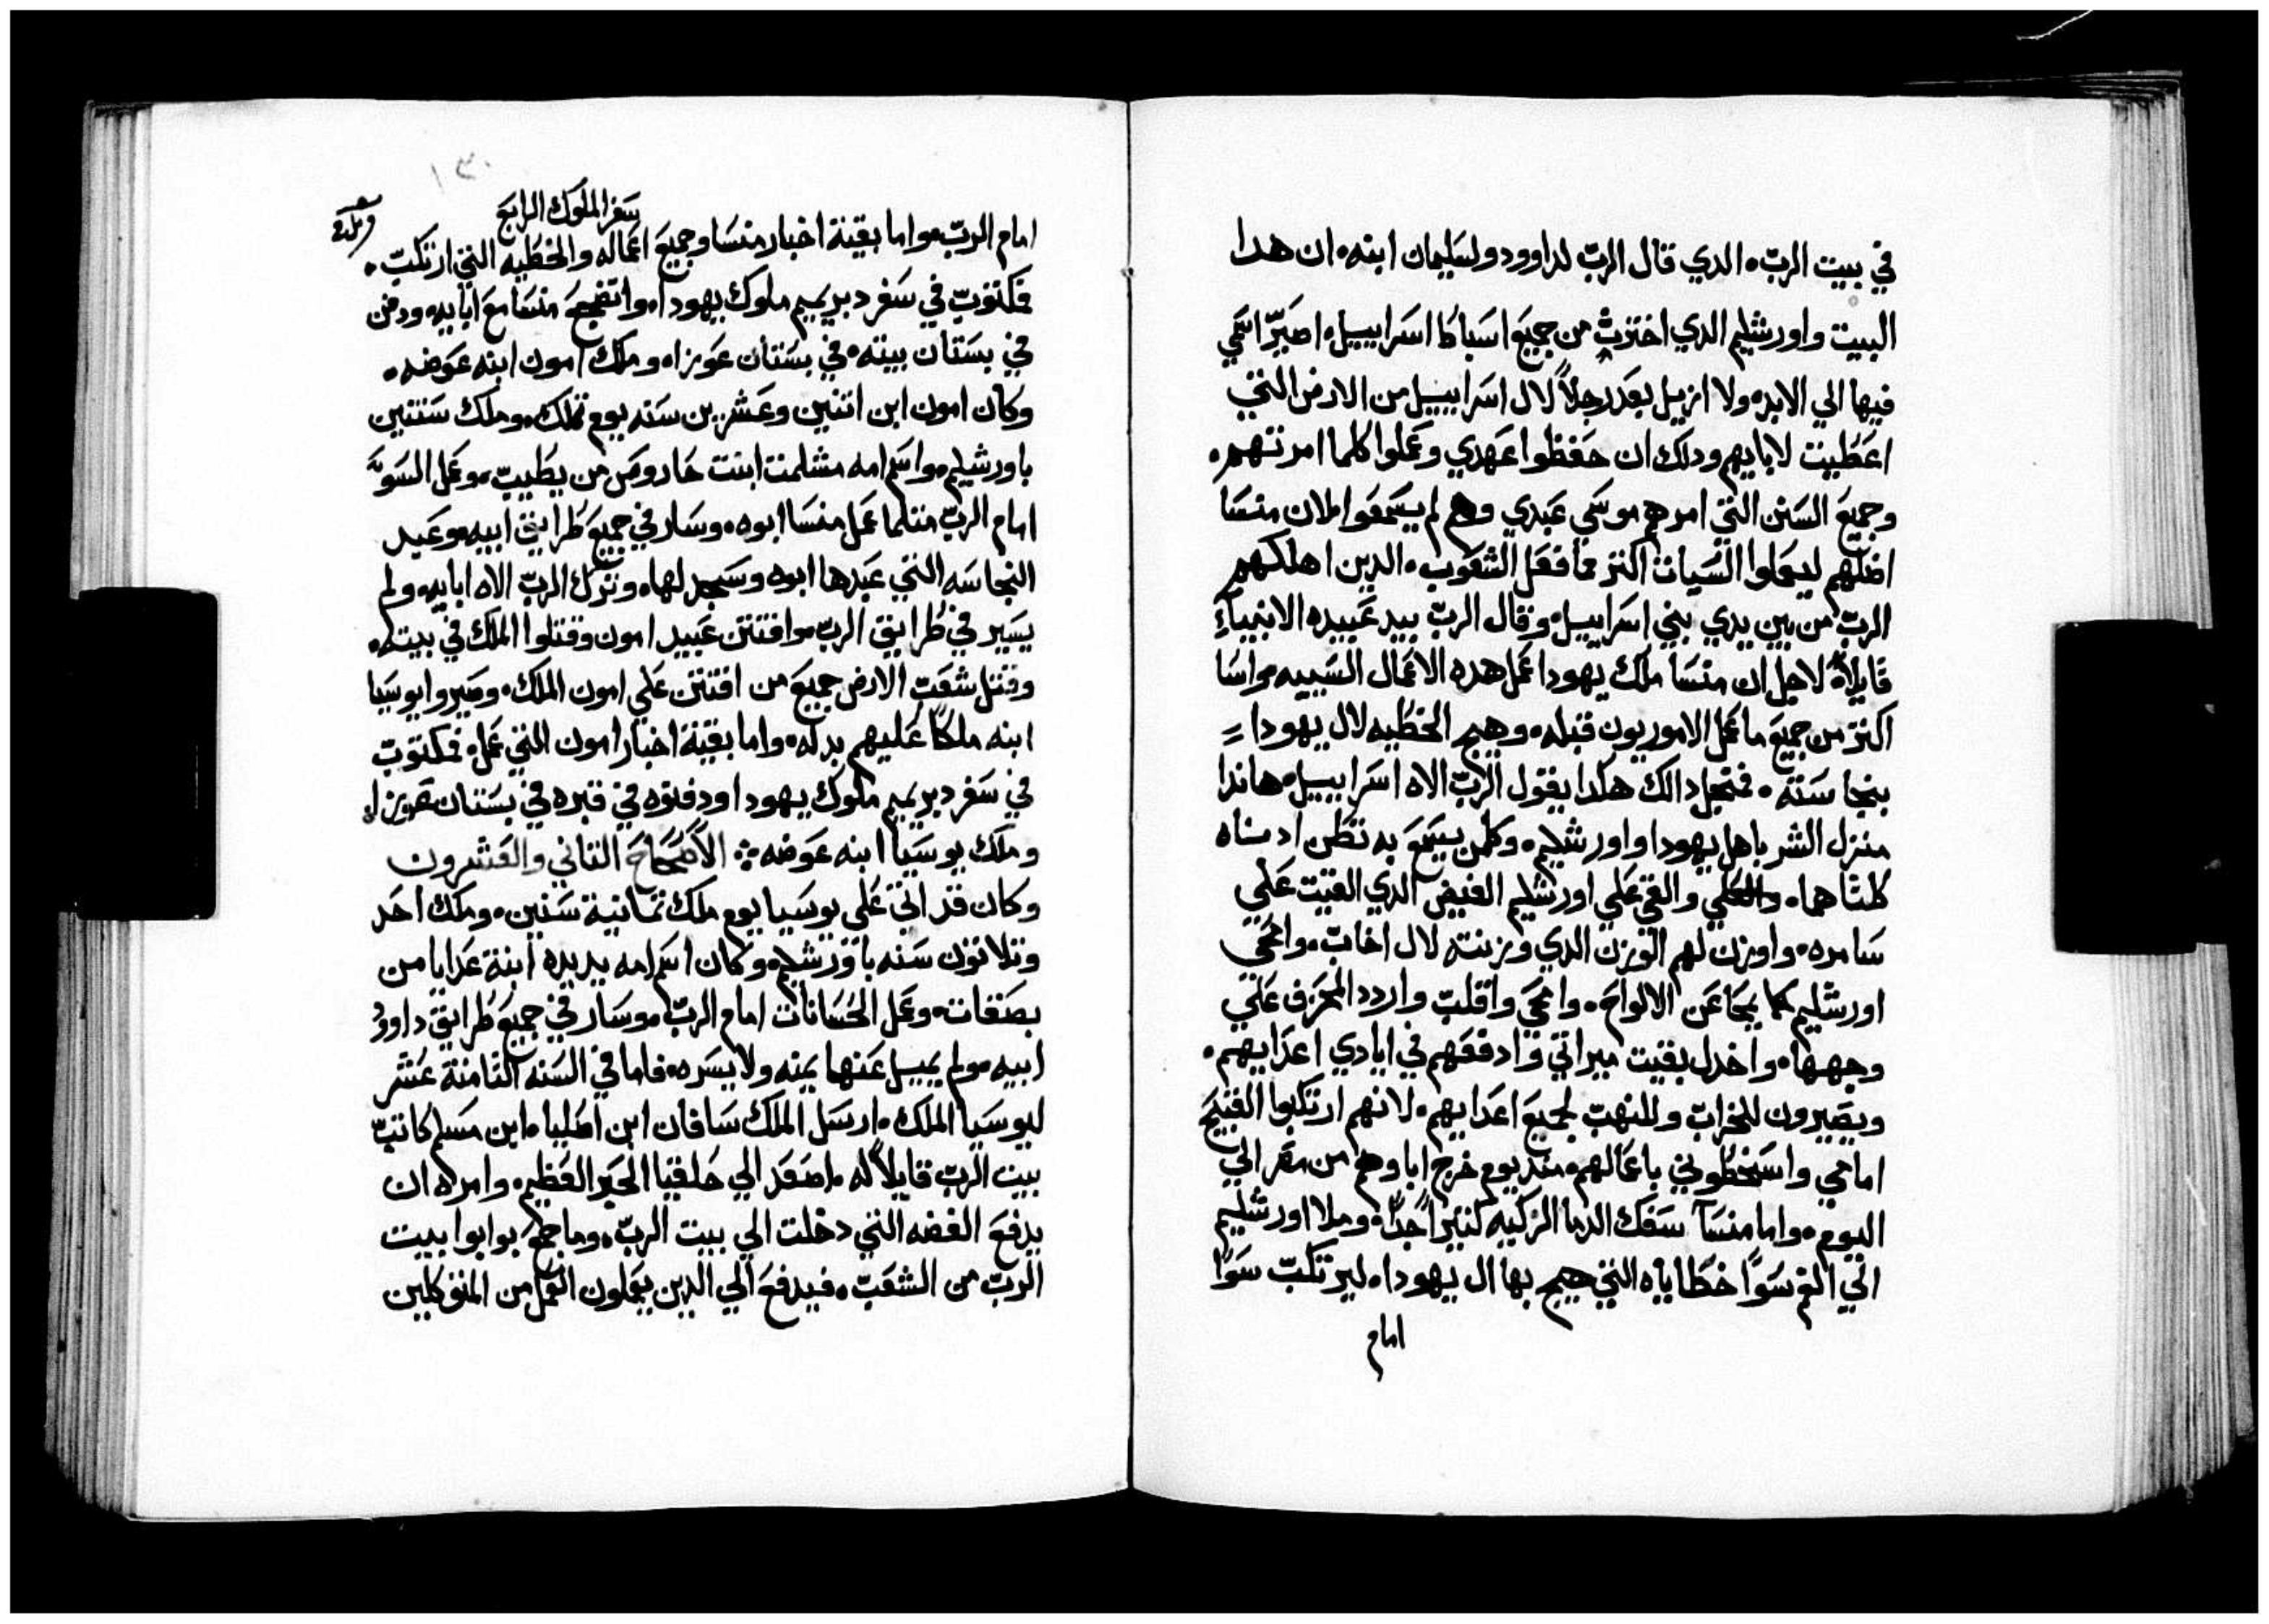 في بيت الرب الدي قال الرب لداوود ولسليمان ابنه ان هدا
البيت واورشليم الدي اخترت من جميع اسباط اسراييل اصير اسمي
فيها الي الابد ولا ازيل بعد رجلاً لال اسراييل من الارض التي
اعطيت لابايهم ودلك ان حفظوا عهدي وعملوا كلما امرتهم
وجميع السنن التي امرهم موسي عبدي وهم لم يسمعوا لان منسا
اضلهم ليعملوا السيات اكتر مما فعل الشعوب الدين اهلكهم
الرب من بين يدي بني اسراييل وقال الرب بيد عبيده الانبياء
قايلاً لاجل ان منسا ملك يهودا عمل هده الاعمال السييه واسا
اكتر من جميع ما عمل الاموريون قبله وهيج الخطيه لال يهودا
بنجاسته فمجل دالك هكدا يقول الرب الاه اسراييل هاندا
منزل الشر باهل يهودا واورشليم وكلمن يسمع به تطن ادناه
كلتاهما والقي علي اورشليم الفيض الدي القيت علي
سامره واوزن لهم الوزن الدي وزنته لال اخاب وامحي
اورشليم كما يمحا عن الالواح وامحي واقلب واردد المحرف علي
وجهها واخدل بقيت ميراتي وادفعهم في ايادي اعدايهم
ويصيرون للخراب وللنهب لجميع اعدايهم لانهم ارتكبوا القبيح
امامي واسخطوني باعمالهم مند يوم خرج اباوهم من مصر الي
اليوم واما منسا سفك الدما الزكيه كتيراً جداً وملا اورشليم
التي الفم سوا خطاياه التي هيج بها ال يهودا ليرتكب سوا
امام
١٣٠
سفر الملوك الرابع
امام الرب واما بقية اخبار منسا وجميع اعماله والخطيه التي ارتكب
فمكتوب في سفر دبريميم ملوك يهودا واتضجع منسا مع ابايه ودفن
في بستان بيته في بستان عوزا وملك امون ابنه عوضه
وكان امون ابن اتنين وعشرين سنه يوم تملك وملك سنتين
باورشليم واسم امه مشلمت ابنت حاروص من يطيب وعمل السوء
امام الرب متلما عمل منسا ابوه وسار في جميع طرايق ابيه وعبد
النجاسه التي عبدها ابوه وسجد لها وترك الرب الاه ابايه ولم
يسير في طرايق الرب وافتتن عبيد امون وقتلوا الملك في بيته
وقتل شعب الارض جميع من افتتن علي امون الملك وصيروا يوسيا
ابنه ملكاً عليهم بدله واما بقية اخبار امون التي عمل فمكتوب
في سفر دبريميم ملوك يهودا ودفنوه في قبره في بستان عوزا
وملك يوسيا ابنه عوضه الاصحاح التاني والعشرون
وكان قد اتي علي يوسيا يوم ملك تمانية سنين وملك احد
وتلاتون سنه باورشليم وكان اسم امه يديده ابنة عدايا من
بصقات وعمل الحسانات امام الرب وسار في جميع طرايق داوود
ابيه ولم يميل عنها يمنه ولا يسره فاما في السنه التامنة عشر
ليوسيا الملك ارسل الملك سافان ابن اصليا ابن مسلم كاتب
بيت الرب قايلاً له اصعد الي حلقيا الحبر العظيم وامره ان
يدفع الفضه التي دخلت الي بيت الرب وما جمع بوابوا بيت
الرب من الشعب فيدفع الي الدين يعملون العمل من المتوكلين